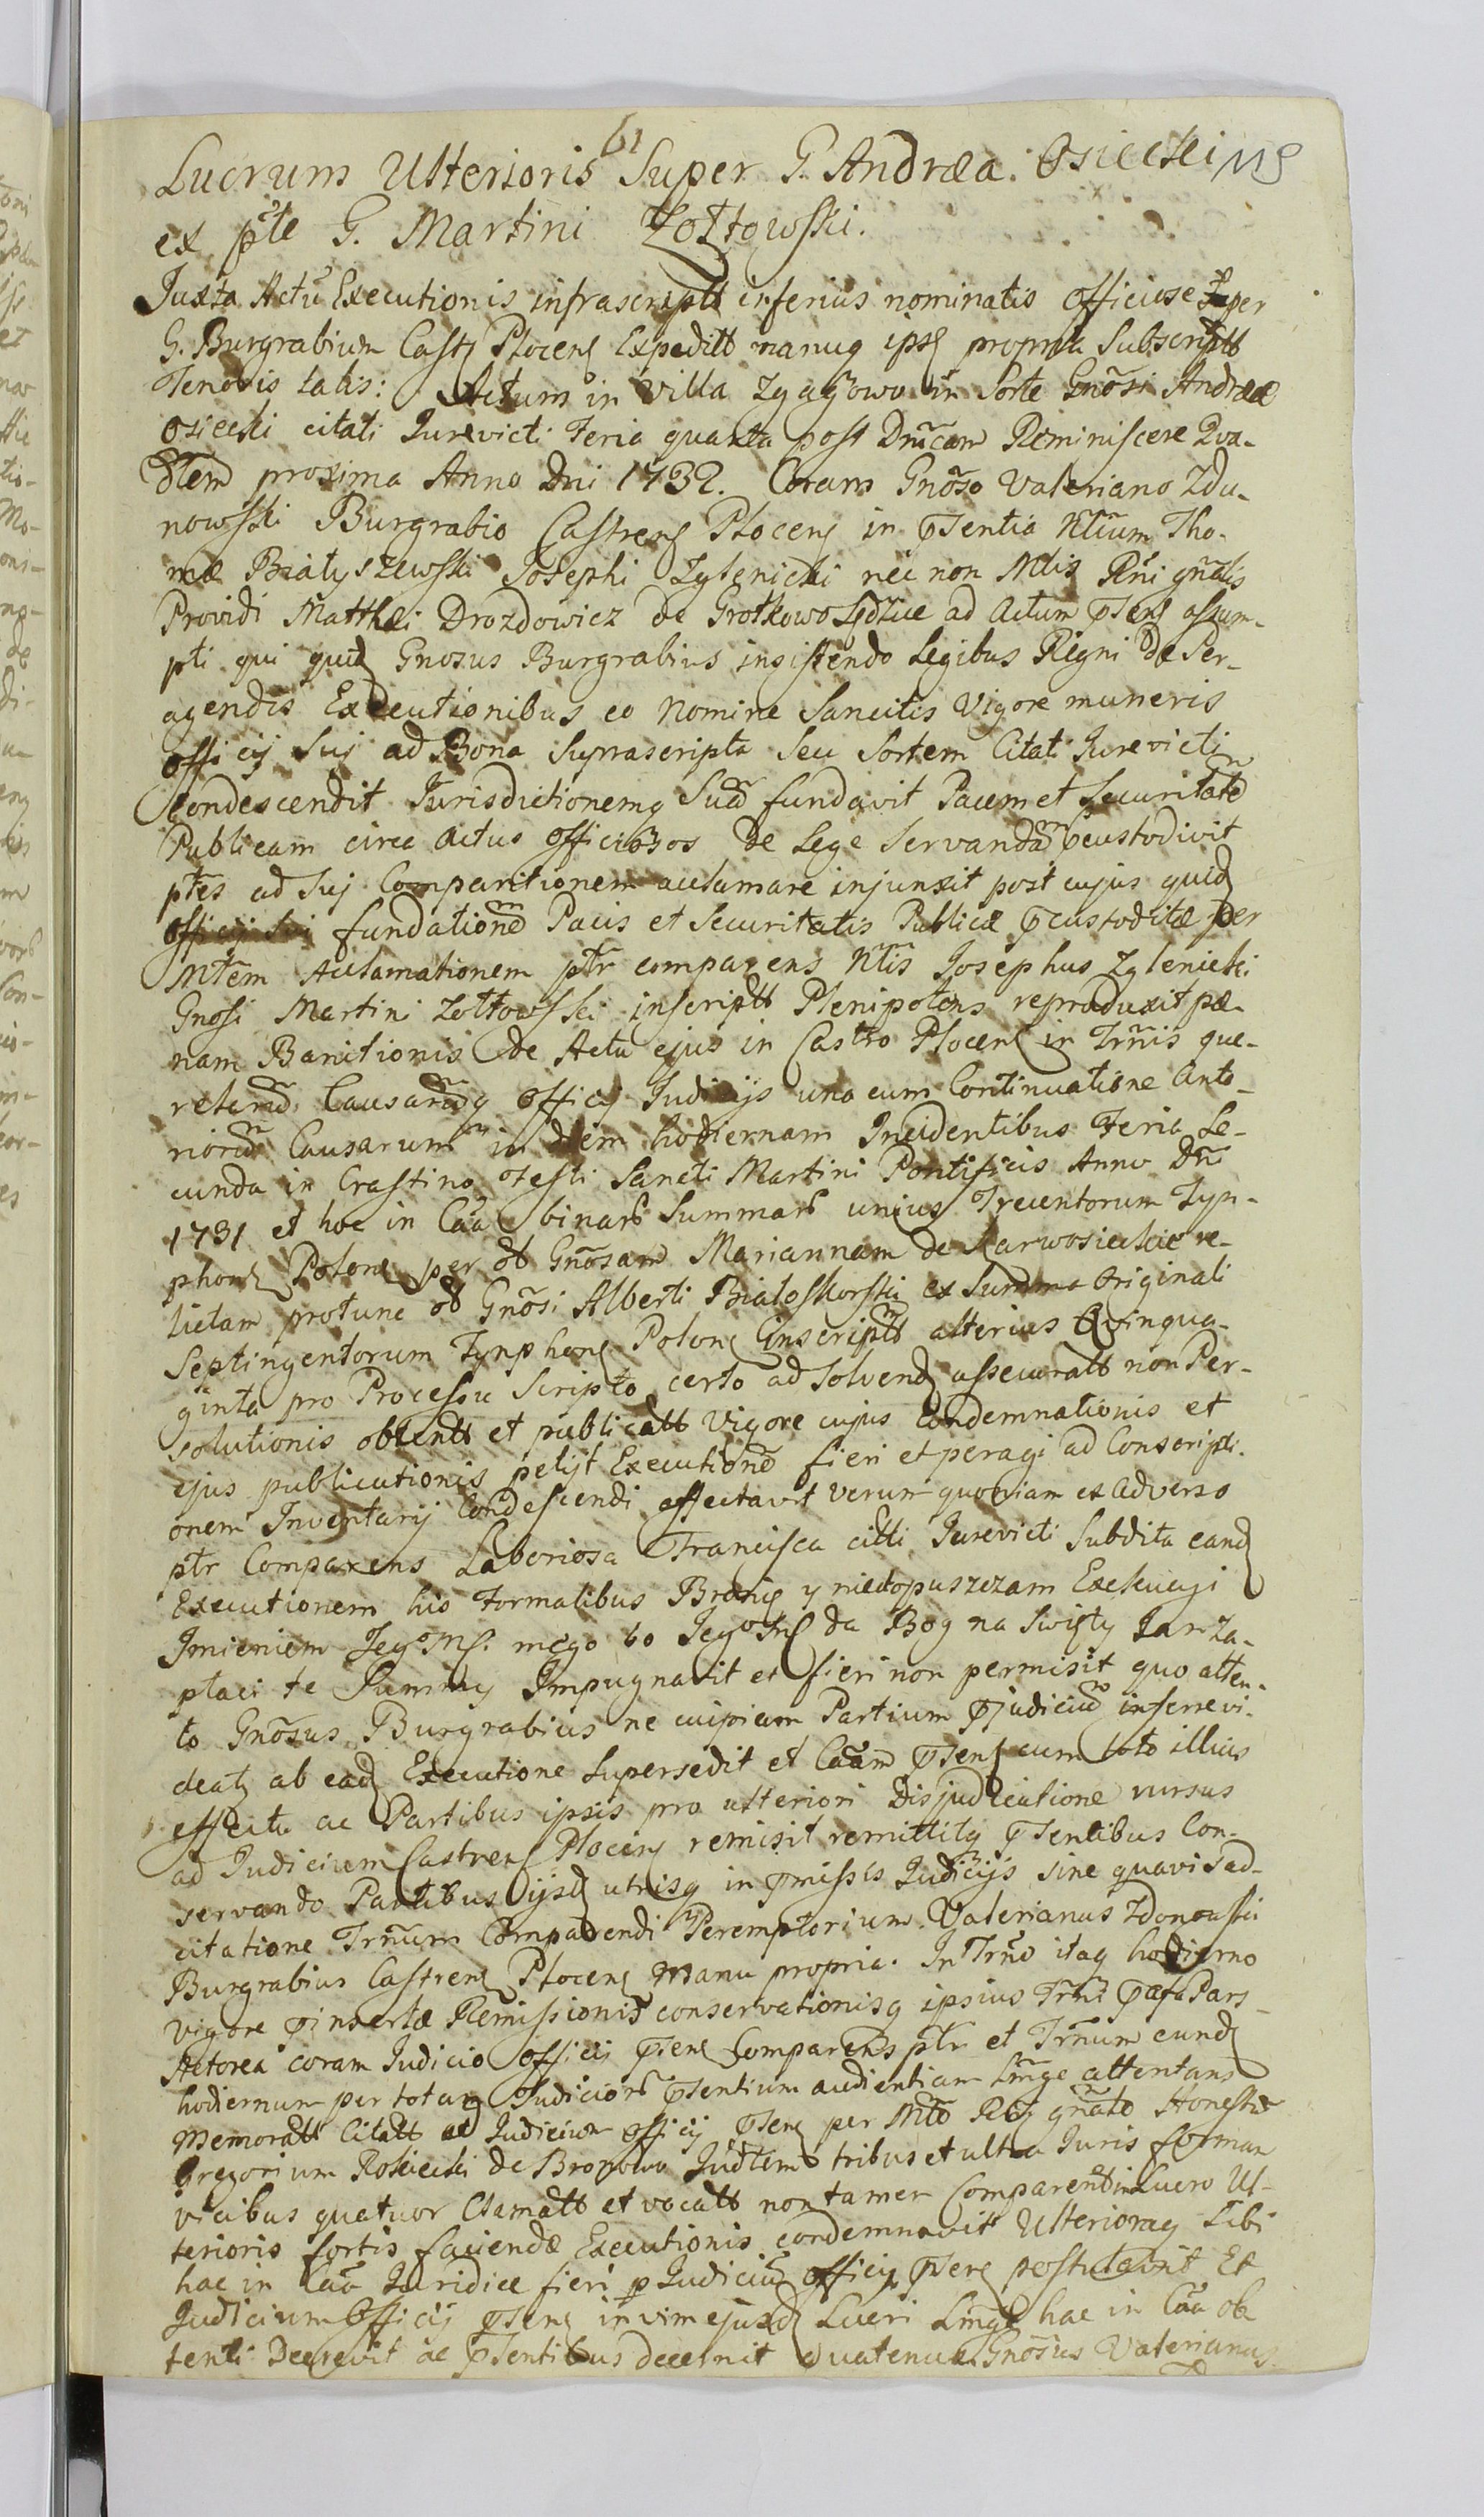 61
Lucrum Ulterioris Super G. Andræa. Osiecki 118
ex pte G. Martini Zołtowski.
Juxta Actũ Executionis infrascriptt inferius nominatis officiose per
G. Burgrabium Castr Plocens Expeditt manuq ipsς propria Subscriptt
Tenoris talis: Actum in Villa Zgagowo in Sorte Gnõsi Andreæ
Osiecki citati Jurevicti Feria quarta post Dnĩcam Reminiscere Qua-
dlem proxima Anno Dni 1732. Coram Gnõso Valeriano Zdu-
nowski Burgrabio Castrens Plocens in Psentia Ntium Tho-
mæ Białyszewski Josephi Zglenicki nec non Mtis Rni gnãlis
Providi Matthæi Drozdowicz de Grotkowo ad Actum Psens assum-
pti qui quid Gnosus Burgrabius insistendo Legibus Regni de Per-
agendis Executionibus eo Nomine Sancitis Vigore muneris
officij Sui ad Bona Suprascripta Seu Sortem Citati Jurevicti
Condescendit Jurisdictionemq Suã fundavit Pacem et Securitate
Publicam circa Actus officiosos de Lege Servandã Pcustodivit
ptes ad Sui Comparitionem acclamare injunxit post cujus quid
fundatione Pacis et Securitatis Publicæ Pcustoditæ per
Mtẽm Acclamationem ptr comparens Ntis Josephus Zglenicki
Gnosi Martini Zołtowski inscriptt Plenipotens reproduxit pæ-
nam Banitionis de Actu ejus in Castro Plocens in Trñis que-
relarũ Causarũq officij Judicijs una cum Continuatione Ante-
riorũ Causarum in diem hodiernam Incidentibus Feria Se-
cunda in Crastino Festi Sancti Martini Pontificis Anno Dni
1731 et hoc in Cãa binarũ Summarũ unius Trecentorum Tyn-
phons Polons per ot Gnõsam Mariannam de Karwosieckie re-
lictam protunc ot Gnõsi Alberti Białoskorski ex Summa Originali
Septingentorum Tynphons Polons inscriptt alterius Quinqua-
ginta pro Processu Scripto certo ad Solvends assecuratt non Per-
solutionis obtentt et publicatt Vigore cujus Condemnationis et
ejus publicationis petijt Executione fieri et peragi ad Conscripti-
onem Inventarij Condescendi affectavit verum quoniam ex Adverso
ptr Comparens Laboriosa Francisca citti Jurevicti Subdita eand
Executionem his Formalibus Bronię y niedopuszczam Exekucyi
Imieniem Jegᵒ Mς. mego bo JegᵒMς da Bog na Swięty Jan Za-
płaci te Summy Impugnavit et fieri non permisit quo atten-
to Gnõsus Burgrabius ne cuipiam Partium Pjudiciũ inferre vi-
deatς ab ead Executione Supersedit et Cãam Psens cum toto illius
effectu ac Partibus ipsis pro ulteriori Disjudicatione rursus
ad Judicium Castrens Plocens remisit remittitq Psentibus Con-
servando Partibus ijsd utrisq in Pmissis Judicijs sine quavis ad-
citatione Trñum Comparendi Peremptorium. Valerianus Zdunowski
Burgrabius Castrens Plocens Manu propria. In Trño itaq hodierno
vigore Pinsertæ Remissionis conservationisq ipsius Trñi Pæfa Pars
Actorea coram Judicio officij Psens Comparens ptr et Trñum eund
hodiernum per totam Judiciorũ Psentium audientiam Lmge attentans
Memoratt Citatt ad Judicium officij Psens per Mte Reg gnãle Honestũ
Gregorium Rościecki de Bropowo Judlem tribus et ultra Juris forman
vicibus quatuor Clamatt et vocatt non tamen Comparentt in Lucro Ul-
terioris fortis faciendæ Executionis condemnavit Ulterioraq Sibi
hac in Cãa Juridice fieri p Judiciũ officij Psens postulavit Et
Judicium officij Psens in vim ejusd Lucri Lmge hac in Cãa ob
tenti Decrevit ac Psentibus decernit Quatenus Gnõsus Valerianus